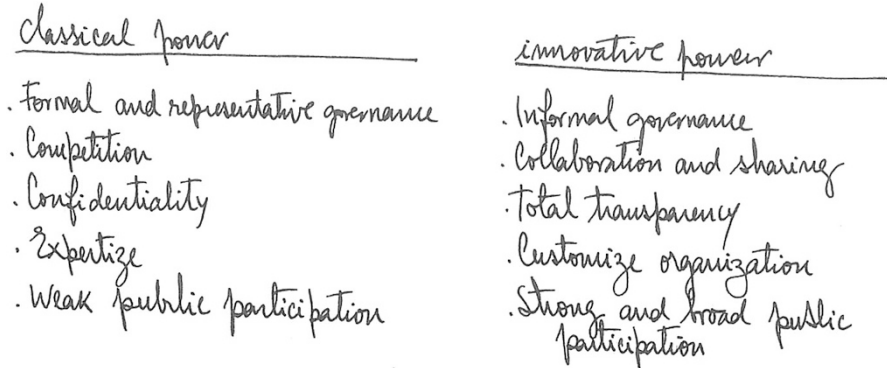 classical power
. Formal and representative governance
. Competition
. Confidentiality
. Expertize
. Weak public participation
innovative power
. Informal governance
. Collaboration and sharing
. Total transparency
. Customize organization
. Strong and broad public
participation